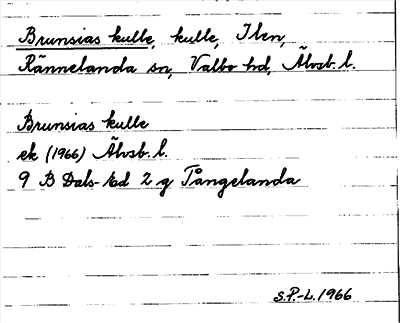 Brunsias kulle, kulle, Ilen,
Rännelanda sn, Valbo hd, Älvsb. l.
Brunsias kulle
ek (1966) Älvsb. l.
9 B Dals-Ed 2 g Tångelanda
S.P.-L. 1966